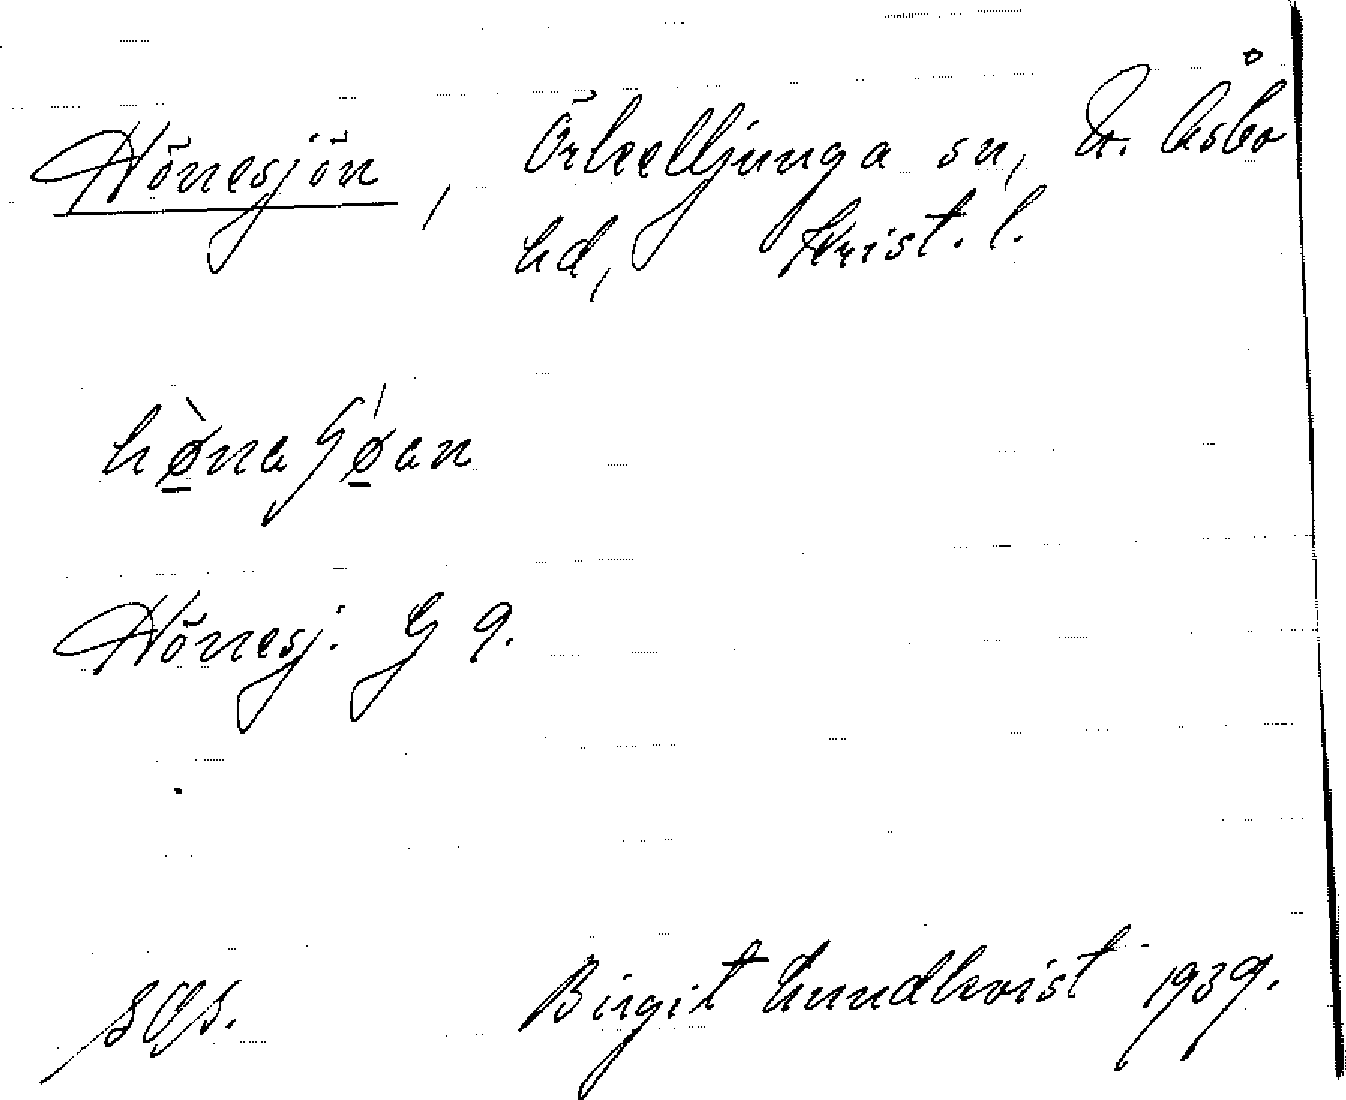 Hönesjön, Örkelljunga sn, N. Åsbo
hd, Krist. l.
hø̠̀naʃǿ̠an
Hönesj. G 9.
sjö.
Birgit Lundkvist 1939.